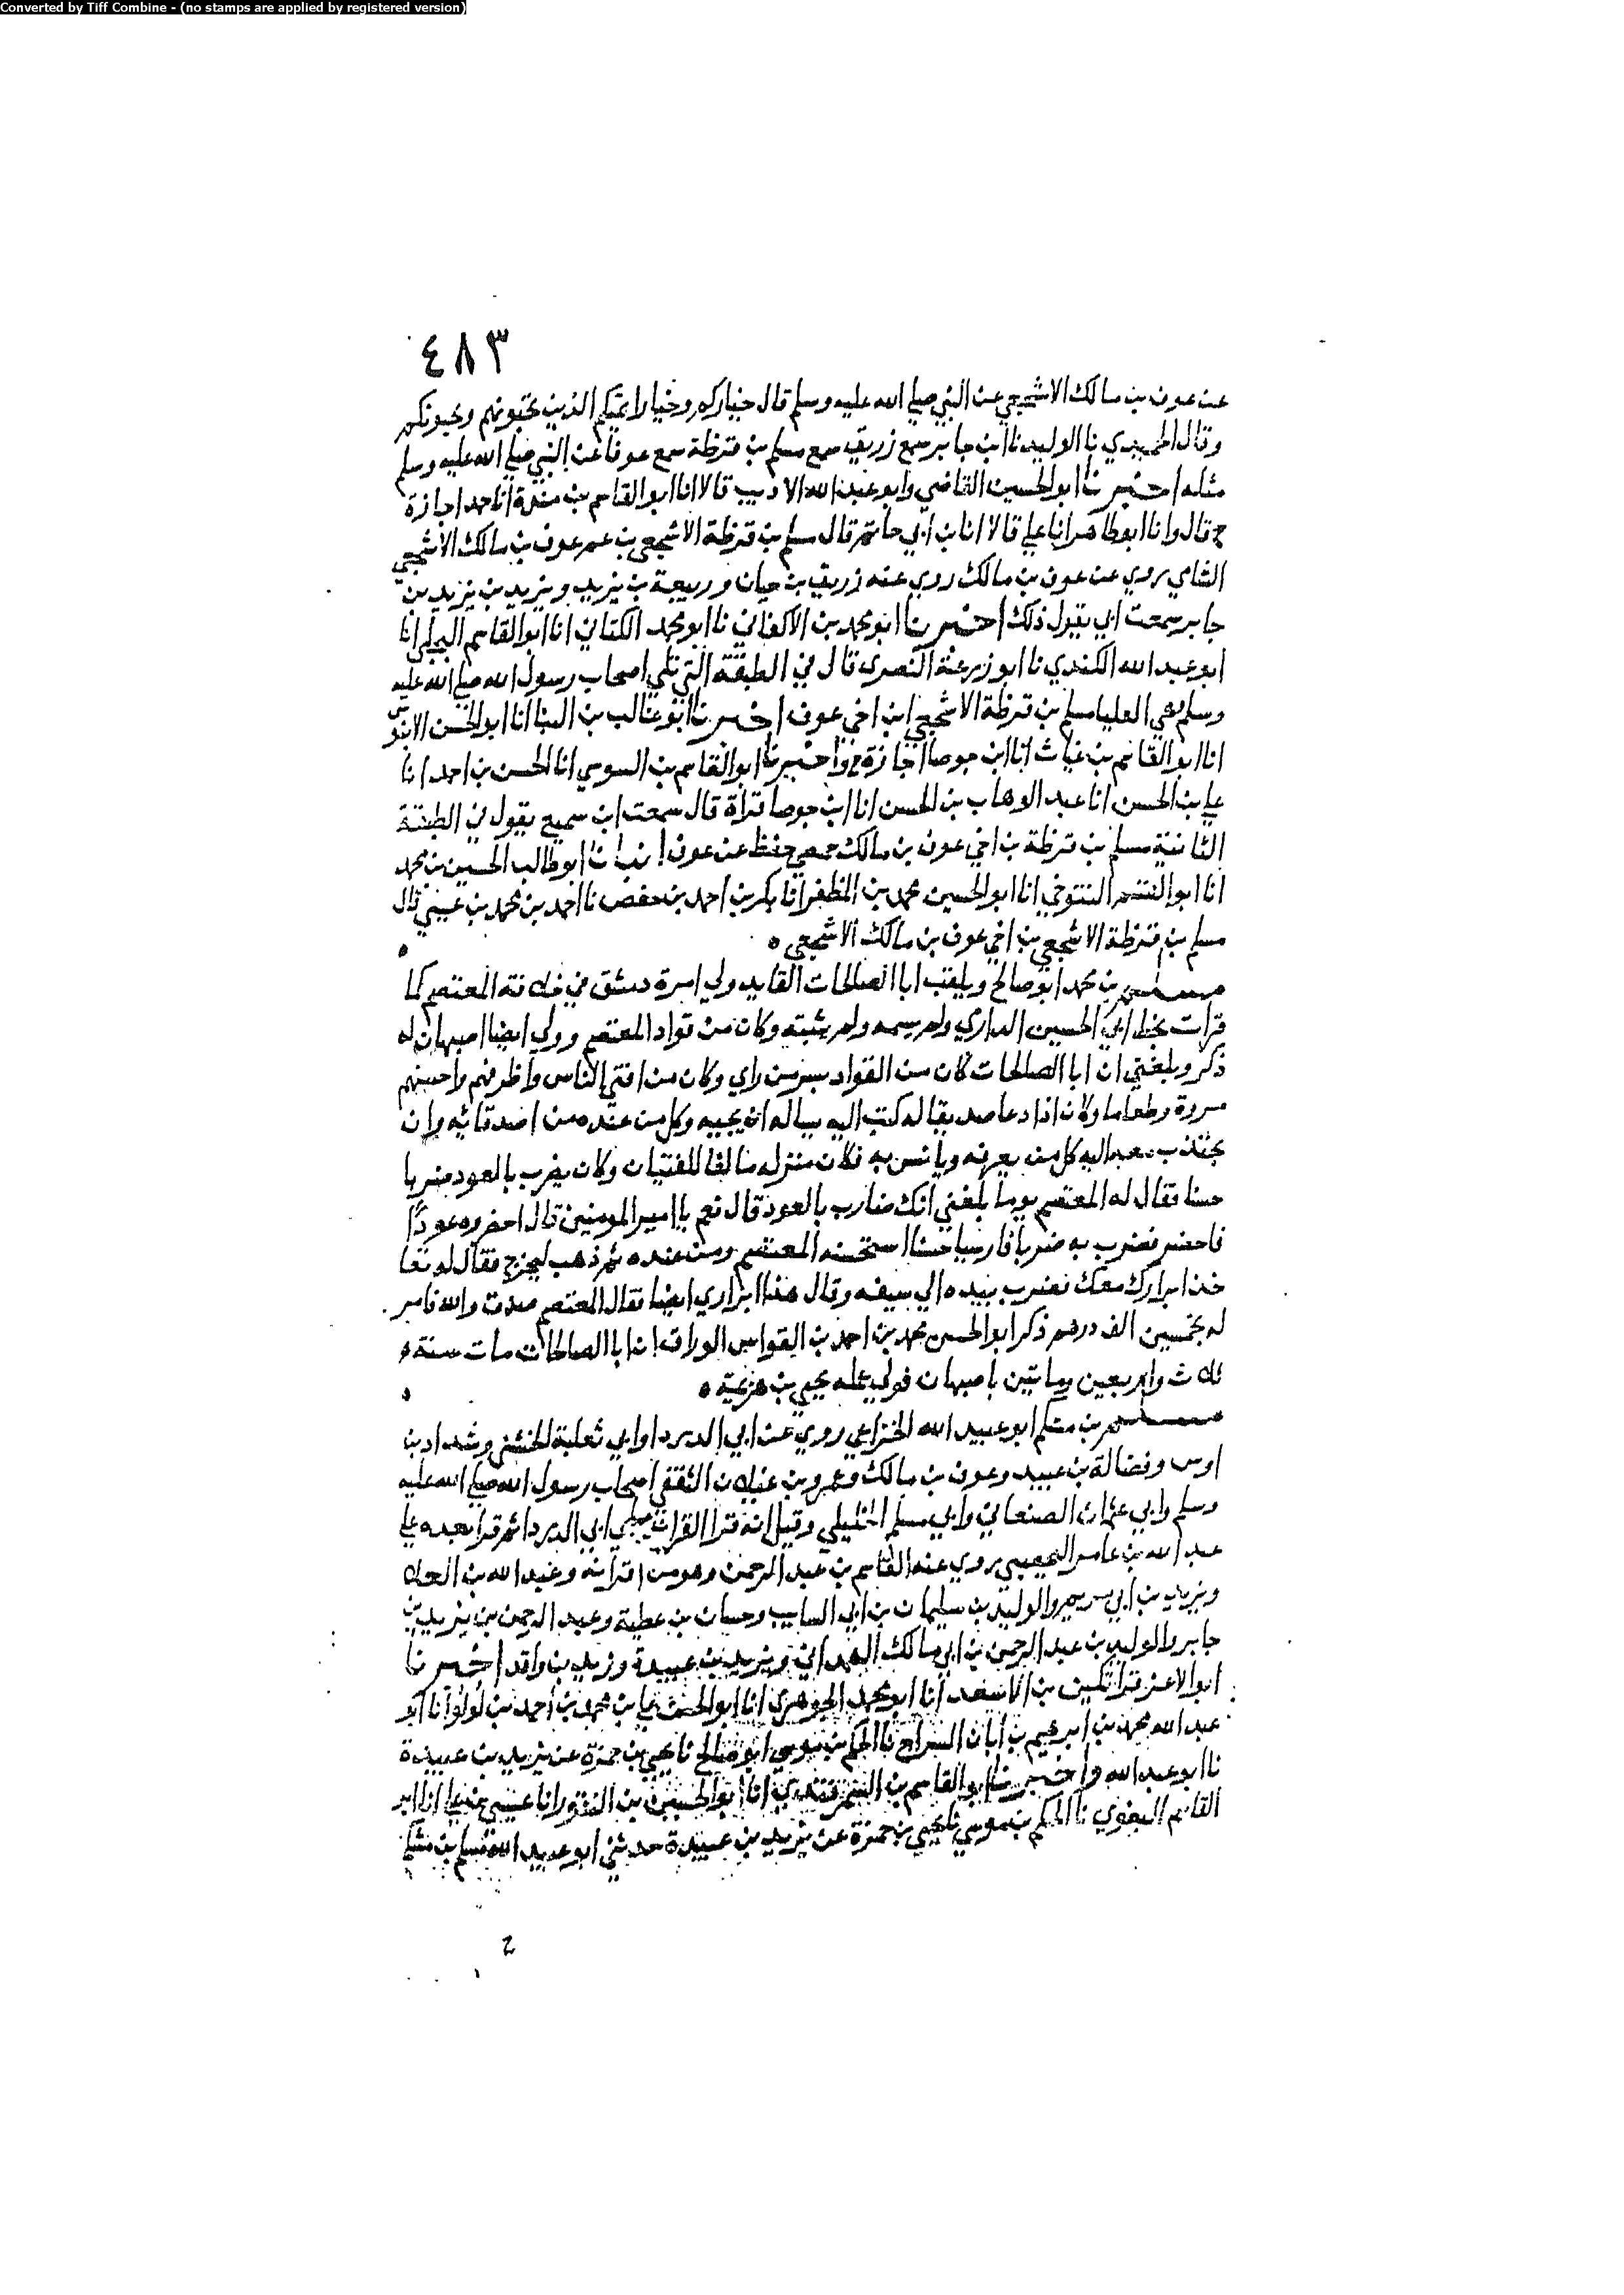 Converted by Tiff Combine - (no stamps are applied by registered version)
٤٨٣
عن عوف بن مالك الاشجعي عن النبي صلي الله عليه وسلم قال خياركم وخيار ايمتكم الذين تحبونهم ويحبونكم
وقال الحميدي نا الوليد نا ابن جابر سمع زريق سمع مسلم بن قرظة سمع عوفا عن النبي صلي الله عليه وسلم
مثله اخبرنا ابو الحسين القاضي وابو عبد الله الاديب قالا انا ابو القاسم بن مندة انا حمد اجازة
ح قال وانا ابو طاهر انا علي قالا انا بن ابي حاتم قال مسلم بن قرظة الاشجعي بن عم عوف بن مالك الاشجعي
الشامي روي عن عوف بن مالك روي عنه زريق بن حيان وربيعة بن يزيد ويزيد بن يزيد بن
جابر سمعت ابي يقول ذلك اخبرنا ابو محمد بن الاكفاني نا ابو محمد الكتاني انا ابو القاسم البجلي انا
ابو عبد الله الكندي نا ابو زرعة النصري قال في الطبقة التي تلي اصحاب رسول الله صلي الله عليه
وسلم وهي العليا مسلم بن قرظة الاشجعي ابن اخي عوف اخبرنا ابو غالب بن البنا انا ابو الحسن الابنوسي
انا ابو القاسم بن عتاب انا ابن جوصا اجازة ح واخبرنا ابو القاسم بن السوسي انا الحسن بن احمد انا
علي بن الحسن انا عبد الوهاب بن الحسن انا ابن جوصا قراة قال سمعت ابن سميع يقول في الطبقة
الثانية مسلم بن قرظة بن اخي عوف بن مالك حمصي حفظ عن عوف انبانا ابو طالب الحسين بن محمد
انا ابو القسم التنوخي انا ابو الحسين محمد بن المظفر انا بكر بن احمد بن حفص نا احمد بن محمد بن عيسي قال
مسلم بن قرظة الاشجعي بن اخي عوف بن مالك الاشجعي ه
مسلم بن محمد ابو صالح ويلقب ابا الصالحات القايد ولي امرة دمشق في خلافة المعتصم كما
قرات بخط ابي الحسين الرازي ولم يسمه ولم يثبته وكان من قواد المعتصم وولي ايضا اصبهان له
ذكر وبلغني ان ابا الصالحات كان من القواد بسر من راي وكان من افتي الناس واظرفهم واحسنهم
مروة وطعاما وكان اذا دعا صديقا له كتب اليه يساله ان يجيبه وكل من عنده من اصدقائه وان
يجتذب معه اليه كل من يعرفه ويانس به فكان منزله مالفا للفتيان وكان يضرب بالعود ضربا
حسنا فقال له المعتصم يوما بلغني انك ضارب بالعود قال نعم يا امير المومنين قال احضروه عودًا
فاحضر فضرب به ضربا فارسيا حسنا استحسنه المعتصم ومن عنده ثم ذهب ليخرج فقال له بغا
خذ ابزارك معك فضرب بيده الي سيفه وقال هذا ابزاري ايضا فقال المعتصم صدق والله فامر
له بخمسين الف درهم ذكر ابو الحسن محمد بن احمد بن القواس الوراق ان ابا الصالحات مات سنة
ثلاث واربعين وماتين باصبهان فولي عمله يحيي بن هرثمة ه
مسلم بن مشكم ابو عبيد الله الخزاعي روي عن ابي الدردا وابي ثعلبة الخشني وشداد بن
اوس وفضالة بن عبيد وعوف بن مالك وعمرو بن غيلان الثقفي اصحاب رسول الله صلي الله عليه
وسلم وابي عثمان الصنعاني وابي مسلم الخليلي وقيل انه قرا القران علي ابي الدردا ثم قرا بعده علي
عبد الله بن عامر اليحصبي روي عنه القاسم بن عبد الرحمن وهو من اقرانه وعبد الله بن العلا
ويزيد بن ابي مريم والوليد بن سليمان بن ابي السايب وحسان بن عطية وعبد الرحمن بن يزيد بن
جابر والوليد بن عبد الرحمن بن ابي مالك الهمداني ويزيد بن عبيدة وزيد بن واقد اخبرنا
ابو الاعز قراتكين بن الاسعد انا ابو محمد الجوهري انا ابو الحسن علي بن محمد بن احمد بن لولو انا ابو
عبد الله محمد بن ابرهيم بن ابان السراج نا الحكم بن موسي ابو صالح نا يحيي بن حمزة عن يزيد بن عبيدة
نا ابو عبد الله واخبرنا ابو القاسم بن السمرقندي انا ابو الحسين بن النقور انا عيسي بن علي انا ابو
القاسم البغوي نا الحكم بن موسي نا يحيي بن حمزة عن يزيد بن عبيدة حدثني ابو عبيد الله مسلم بن مشكم